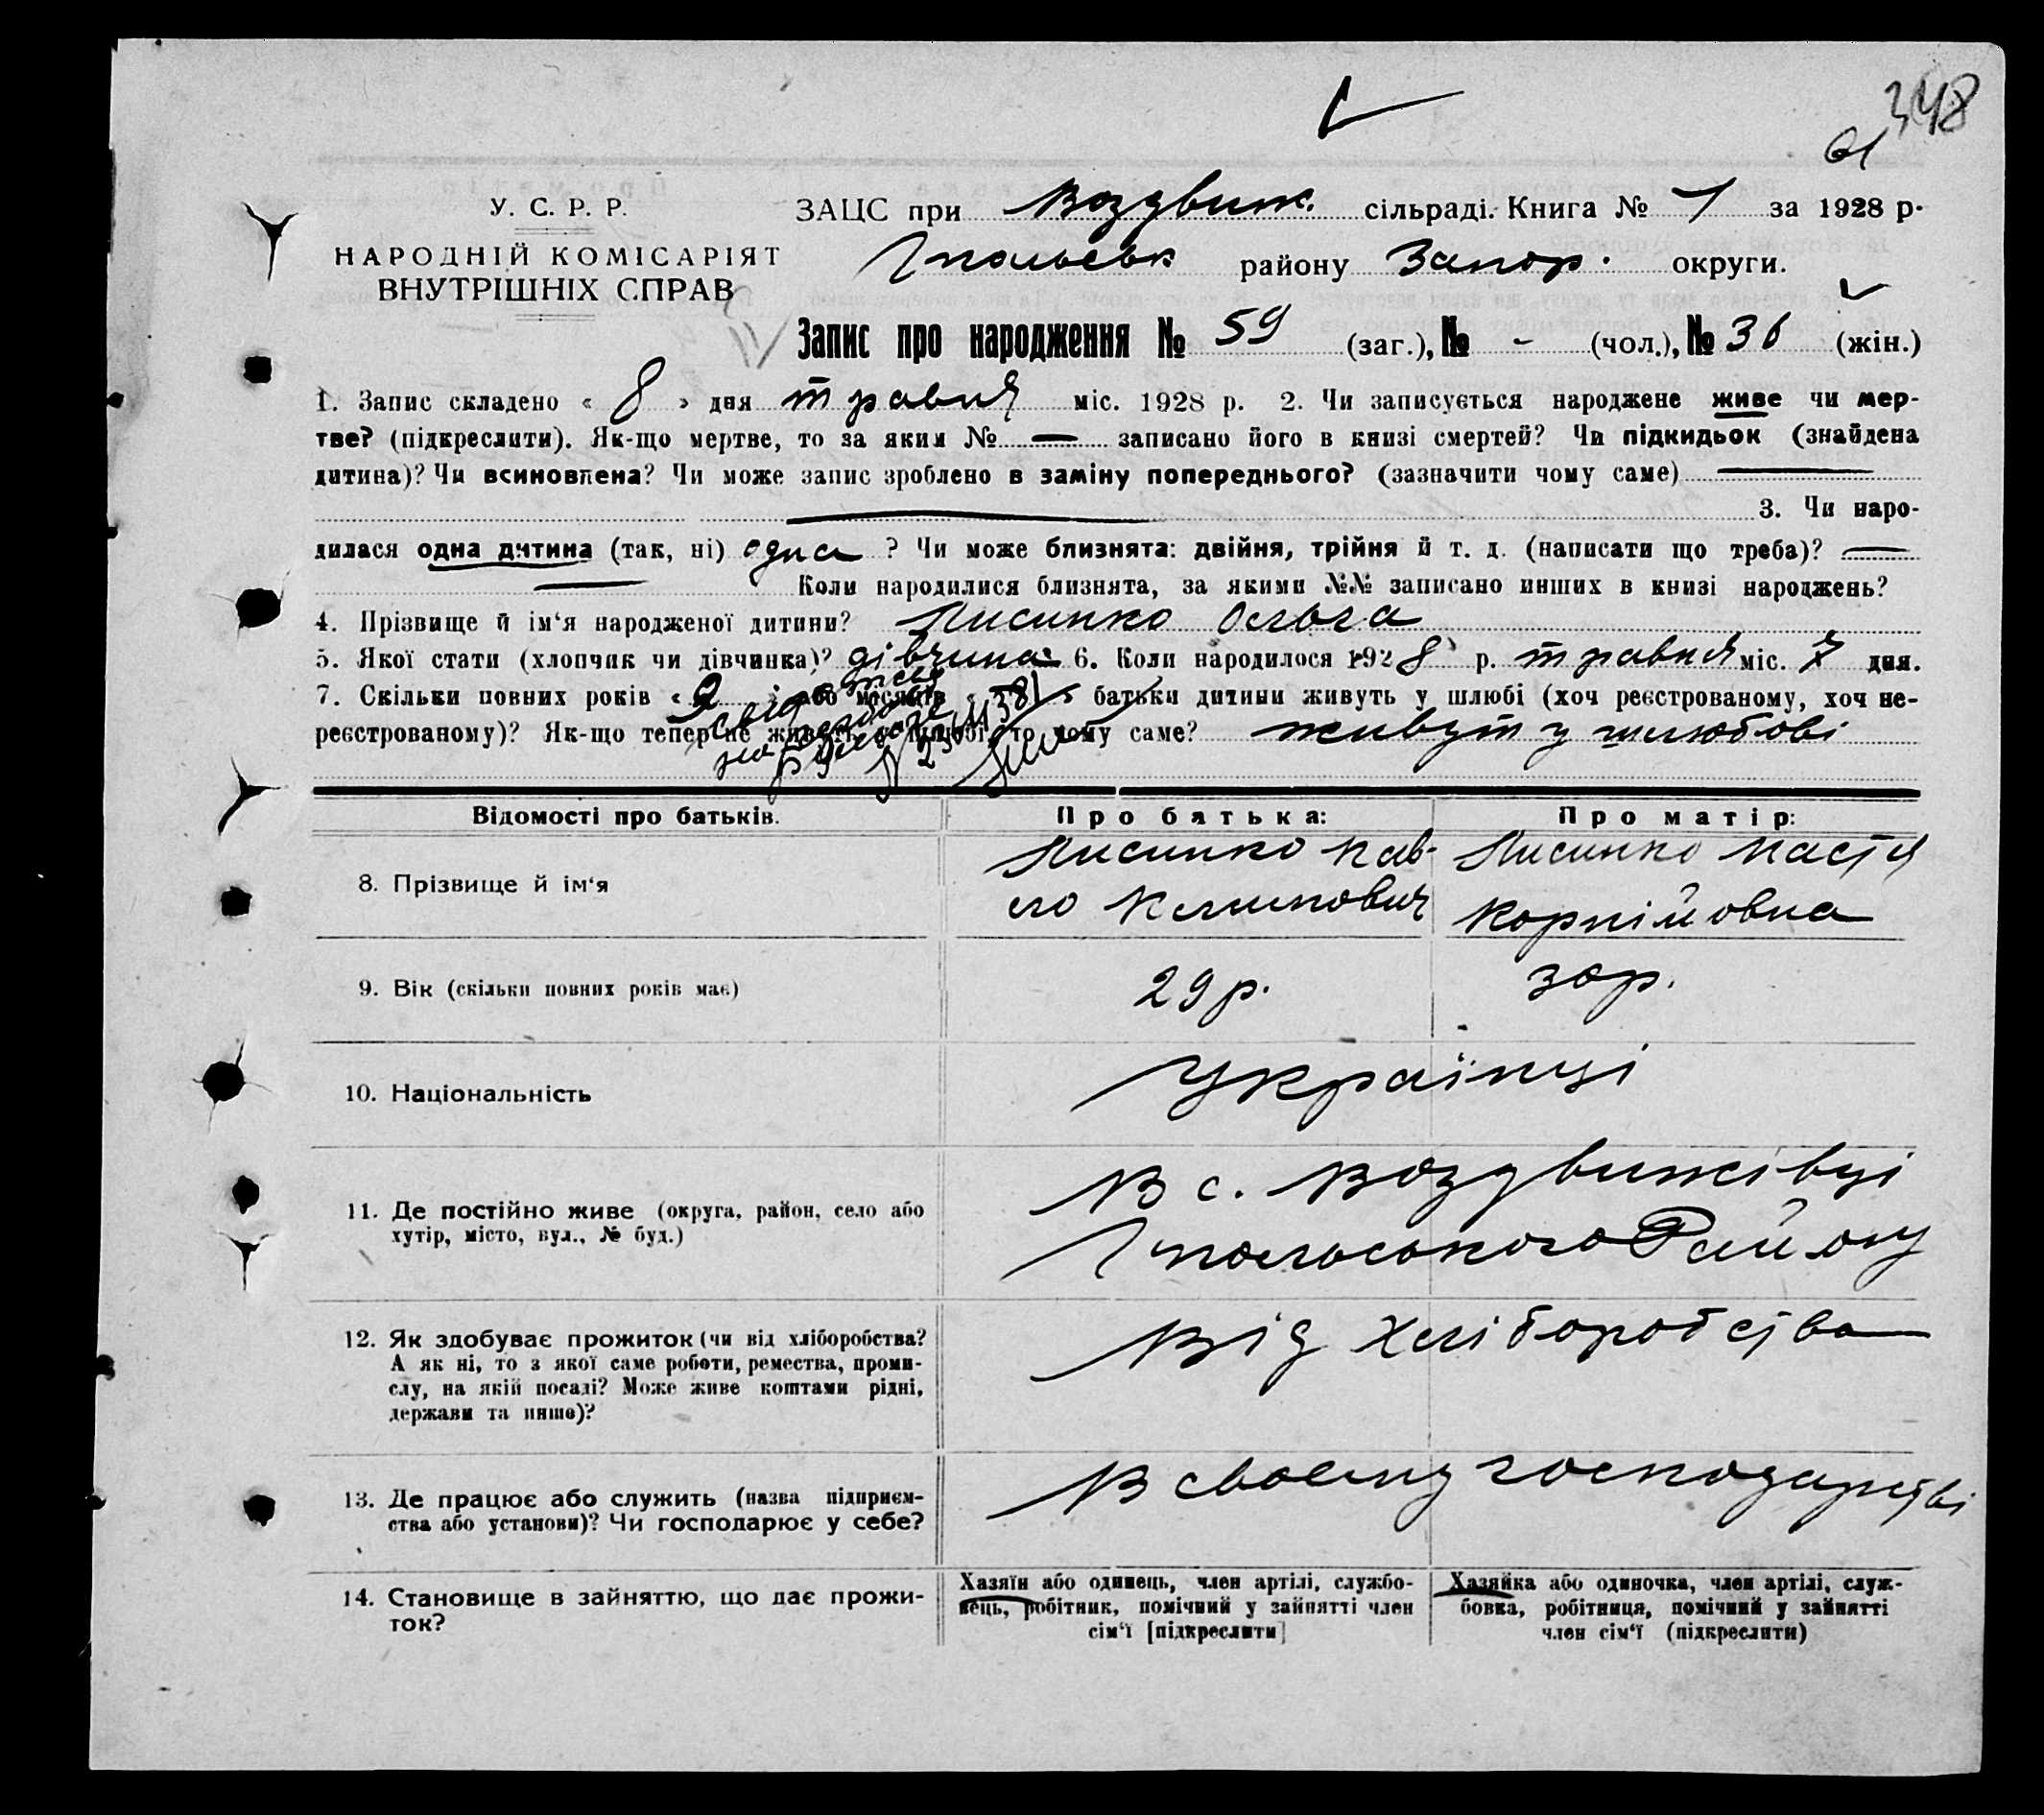 348
61
У. С. Р. Р.
НАРОДНІЙ КОМІСАРІЯТ
ВНУТРІШНІХ СПРАВ
ЗАЦС при Воздвиж. сільраді. Книга № 1 за 1928 р.
району Запор. округи.
Запис про народження № 59 (заг.), № - (чол.), № 36 (жін.)
1. Запис складено « 8 » дня травня міс. 1928 р. 2. Чи записується народжене живе чи мер-
тве? (підкреслити). Як-що мертве, то за яким № — записано його в книзі смертей? Чи підкидьок (знайдена
дитина)? Чи всиновлена? Чи може запис зроблено в заміну попереднього? (зазначити чому саме) —
— 3. Чи наро-
дилася одна дитина (так, ні) одна ? Чи може близнята: двійня, трійня й т. д. (написати що треба)? —
— Коли народилися близнята, за якими №№ записано инших в книзі народжень?
4. Прізвище й ім‘я народженої дитини? Лисинко Ольга
5. Якої стати (хлопчик чи дівчинка)? дівчина 6. Коли народилося 1928 р. травня міс. 7 дня.
7. Скільки повних років « 9 » або місяців батьки дитини живуть у шлюбі (хоч реєстрованому, хоч не-
реєстрованому)? Як-що тепер не живуть у шлюбі, то чому саме? живут у шлюбові
Відомості про батьків.
Про батька:
Про матір:
8. Прізвище й ім‘я
Лисинко Пав-
ло Климович
Лисинко Настя
Корнійовна
9. Вік (скільки повних років має)
29 р.
30 р.
10. Національність
Українці
11. Де постійно живе (округа, район, село або
хутір, місто, вул., № буд.)
В с. Воздвижівці
Району
12. Як здобуває прожиток (чи від хліборобства?
А як ні, то з якої саме роботи, ремества, проми-
слу, на якій посаді? Може живе коштами рідні,
держави та инше)?
Від Хліборобства
13. Де працює або служить (назва підприєм-
ства або установи)? Чи господарює у себе?
В своєму господарстві
14. Становище в зайняттю, що дає прожи-
ток?
Хазяїн або одинець, член артілі, службо-
вець, робітник, помічний у зайнятті член
сім‘ї [підкреслити]
Хазяйка або одиночка, член артілі, служ-
бовка, робітниця, помічний у зайнятті
член сім‘ї (підкреслити)